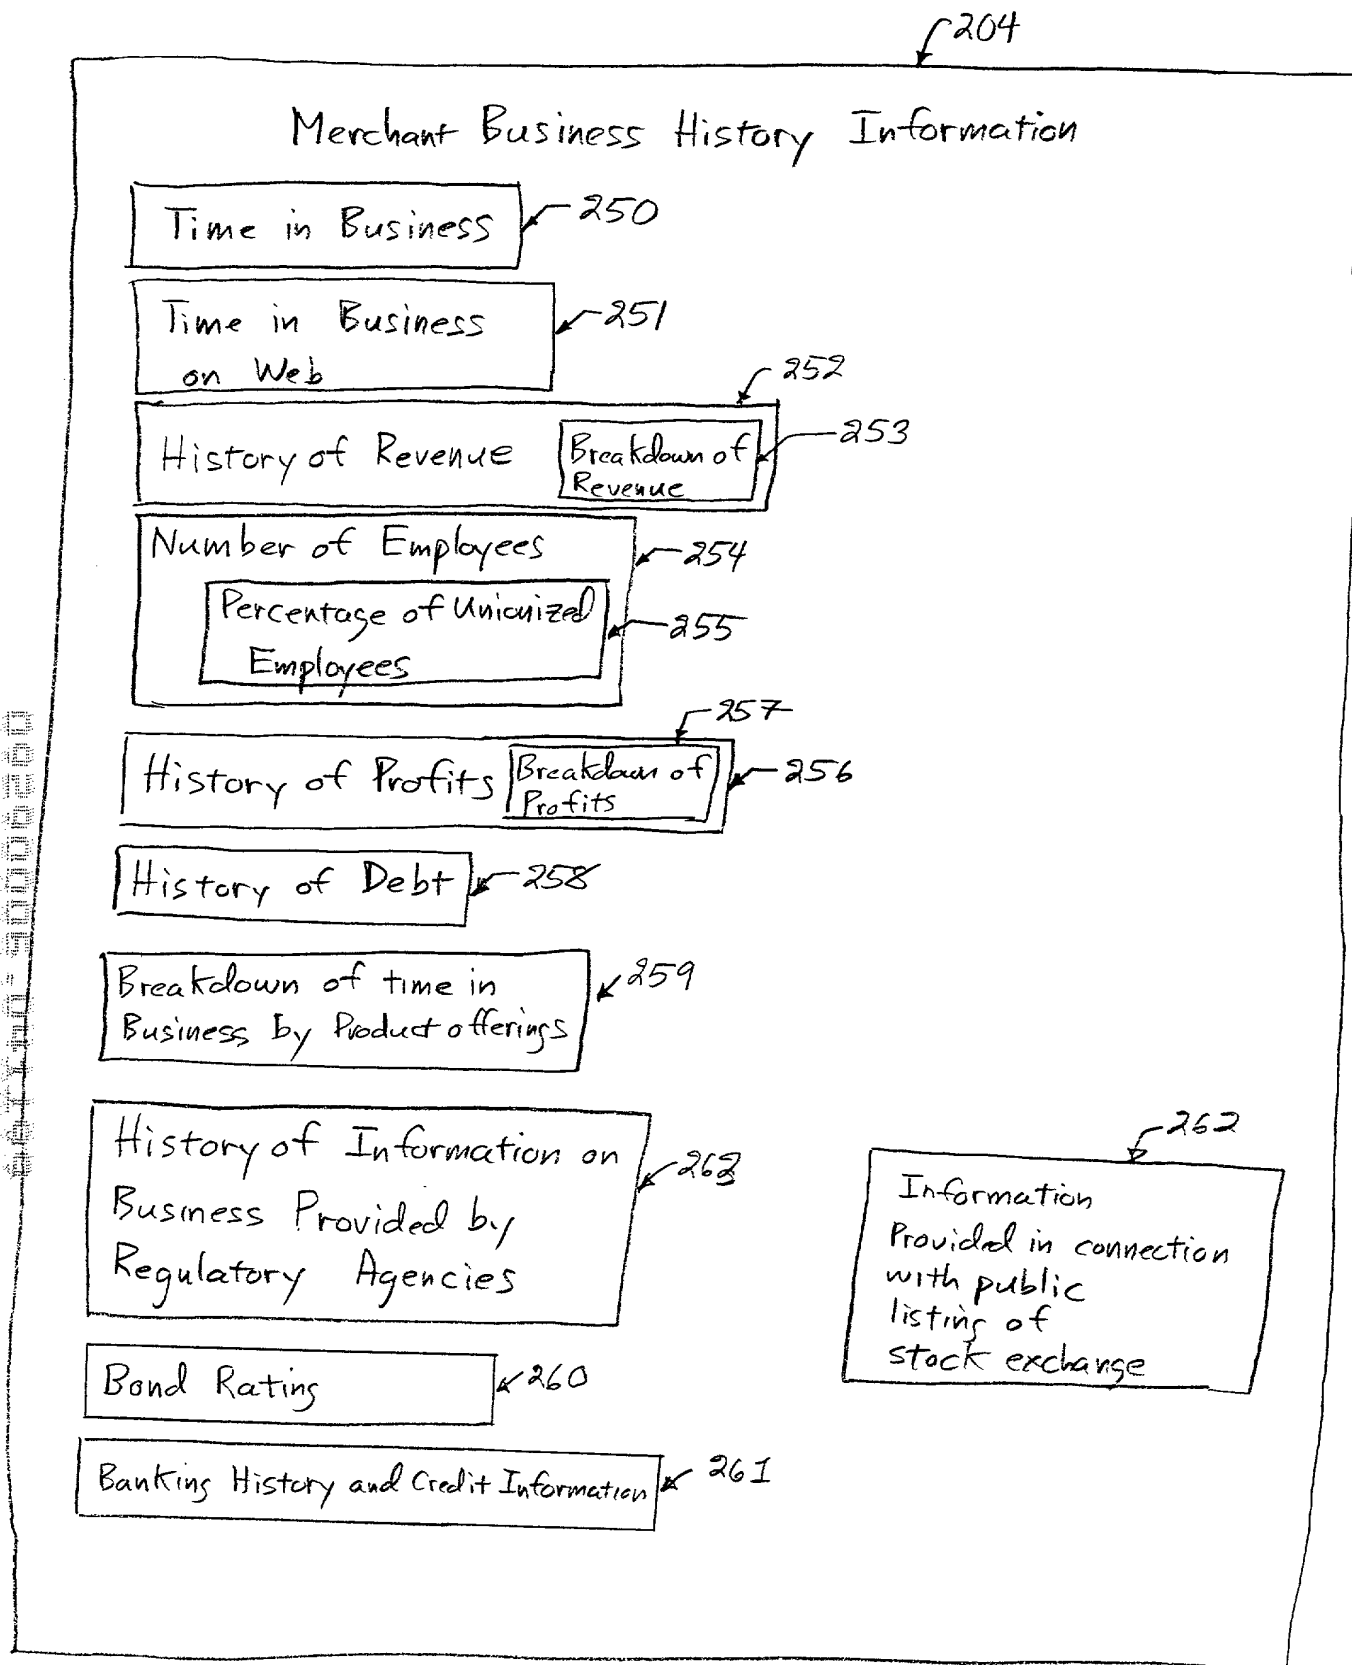 204
Merchant Business History Information
Time in Business
250
Time in Business
on Web
251
252
History of Revenue
Breakdown of
Revenue
253
Number of Employees
254
Percentage of Unionized
Employees
255
257
History of Profits
Breakdown of
Profits
256
History of Debt
258
Breakdown of time in
Business by Product offerings
259
History of Information on
Business Provided by
Regulatory Agencies
263
262
Information
Provided in connection
with public
listing of
stock exchange
Bond Rating
260
Banking History and Credit Information
261